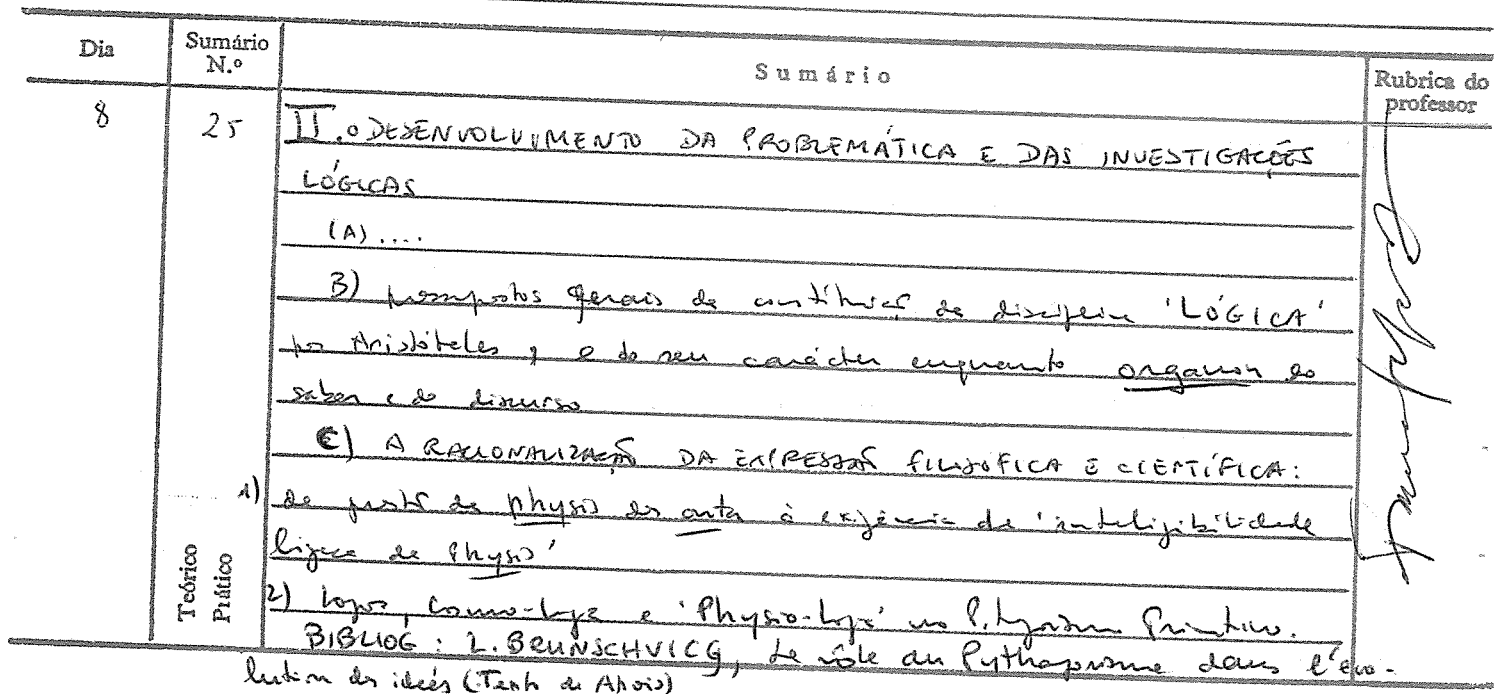 Dia
Sumário N.º
Sumário
Rubrica do professor
8
25
II. o DESENVOLVIMENTO DA PROBLEMÁTICA E DAS INVESTIGAÇÕES
LÓGICAS
(A) ....
B) pressupostos gerais da constituição da disciplina 'LÓGICA'
por Aristóteles, e do seu carácter enquanto organon do
saber e do discurso
C) A RACIONALIZAÇÃO DA EXPRESSÃO FILOSÓFICA E CIENTÍFICA:
1) da questão da physis dos onta à exigência da 'inteligibilidade
lógica da Physis'
2) Logos, cosmo-logia e 'Physio-logia' no Pitagorismo Primitivo.
BIBLIOG: L. BRUNSCHVICG, Le rôle du Pythagorisme dans l'évo-
lution des idées (Texto de Apoio)
Teórico
Prático